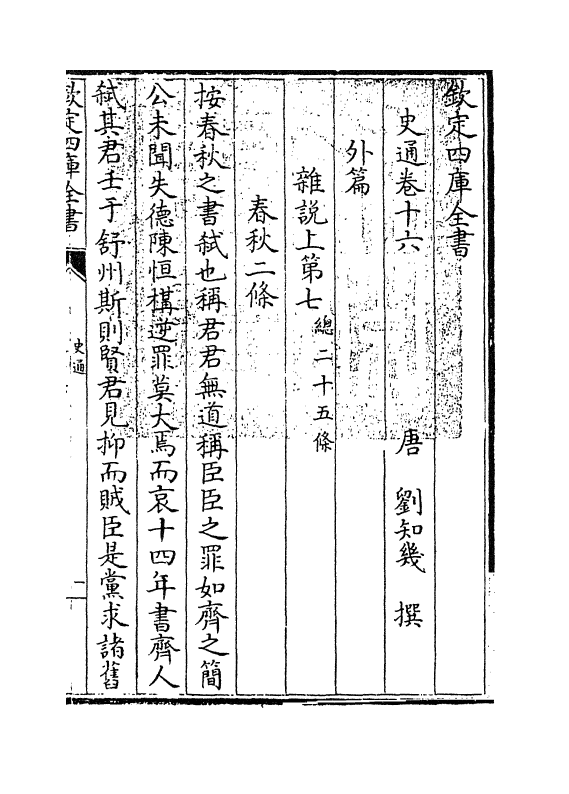 欽定四庫全書
史通卷十六　唐　劉知幾　撰
外篇
雜說上第七總二十五條
春秋二條
按春秋之書弑也稱君君無道稱臣臣之罪如齊之簡
公未聞失德陳恒構逆罪莫大焉而哀十四年書齊人
弑其君壬于舒州斯則賢君見抑而賊臣是黨求諸舊
欽定四庫全書
史通